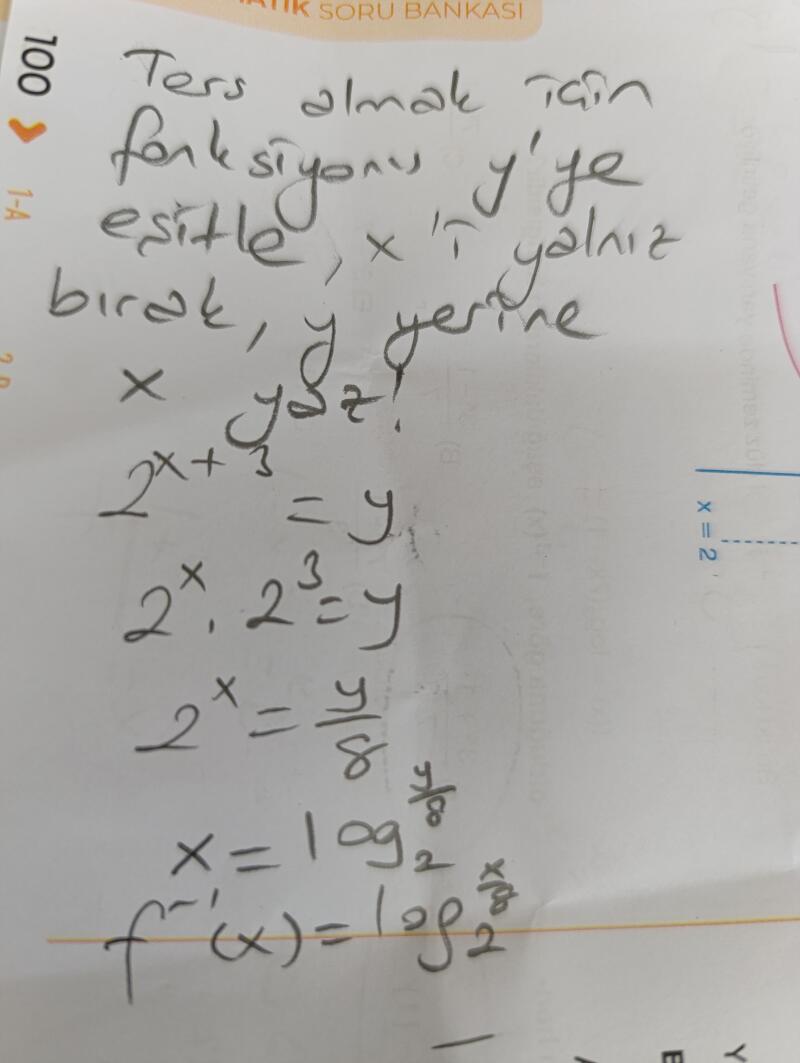 SORU BANKASI
100
1-A
Ters almak için
fonksiyonu y'ye
eşitle, x'i yalnız
bırak, y yerine
x yaz!
2^{x+3} = y
2^x . 2^3 = y
2^x = y/8
x = log_2 y/8
f^{-1}(x) = log_2 x/8
x = 2